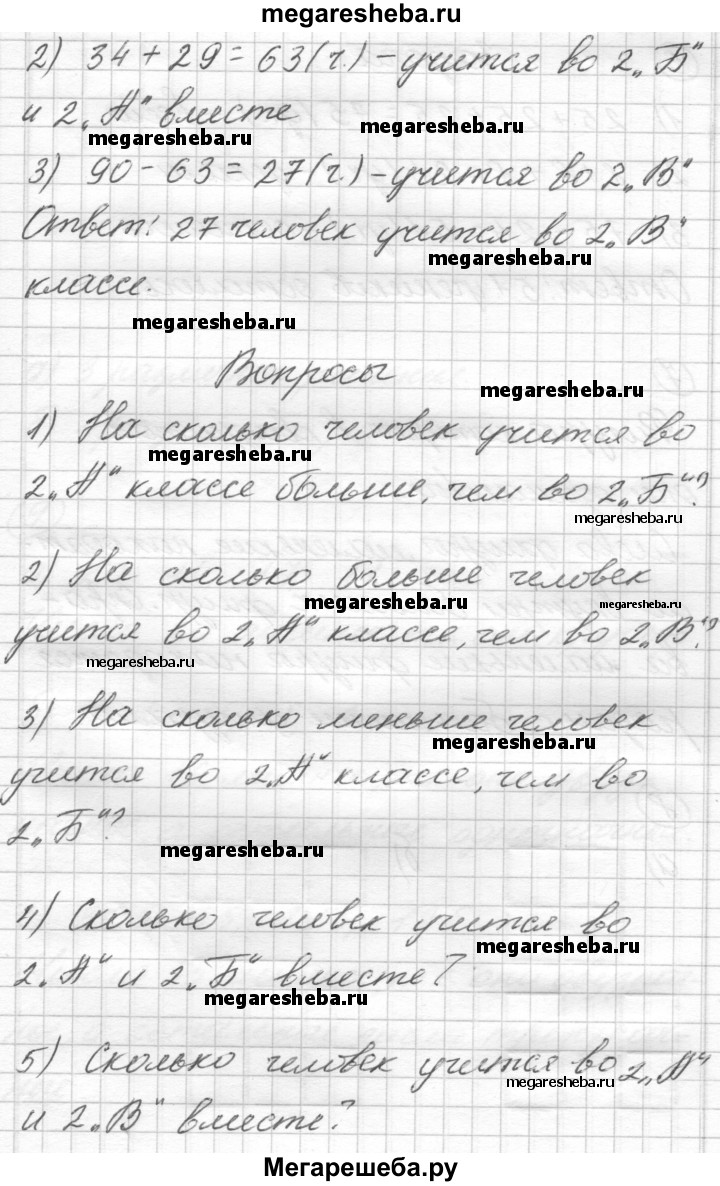 megaresheba.ru
2) 34 + 29 = 63 (ч.) – учится во 2 „Б"
и 2 „А" вместе
megaresheba.ru
megaresheba.ru
3) 90 - 63 = 27 (ч.) – учится во 2 „В"
Ответ: 27 человек учится во 2 „В"
megaresheba.ru
классе.
megaresheba.ru
Вопросы
megaresheba.ru
1) На сколько человек учится во
megaresheba.ru
2 „А" классе больше, чем во 2 „Б"?
megaresheba.ru
2) На сколько больше человек
megaresheba.ru
megaresheba.ru
учится во 2 „А" классе, чем во 2 „В"?
megaresheba.ru
3) На сколько меньше человек
megaresheba.ru
учится во 2 „А" классе, чем во
2 „Б"?
megaresheba.ru
4) Сколько человек учится во
megaresheba.ru
2 „А" и 2 „Б" вместе?
megaresheba.ru
5) Сколько человек учится во 2 „А"
megaresheba.ru
и 2 „В" вместе?
Мегарешеба.ру